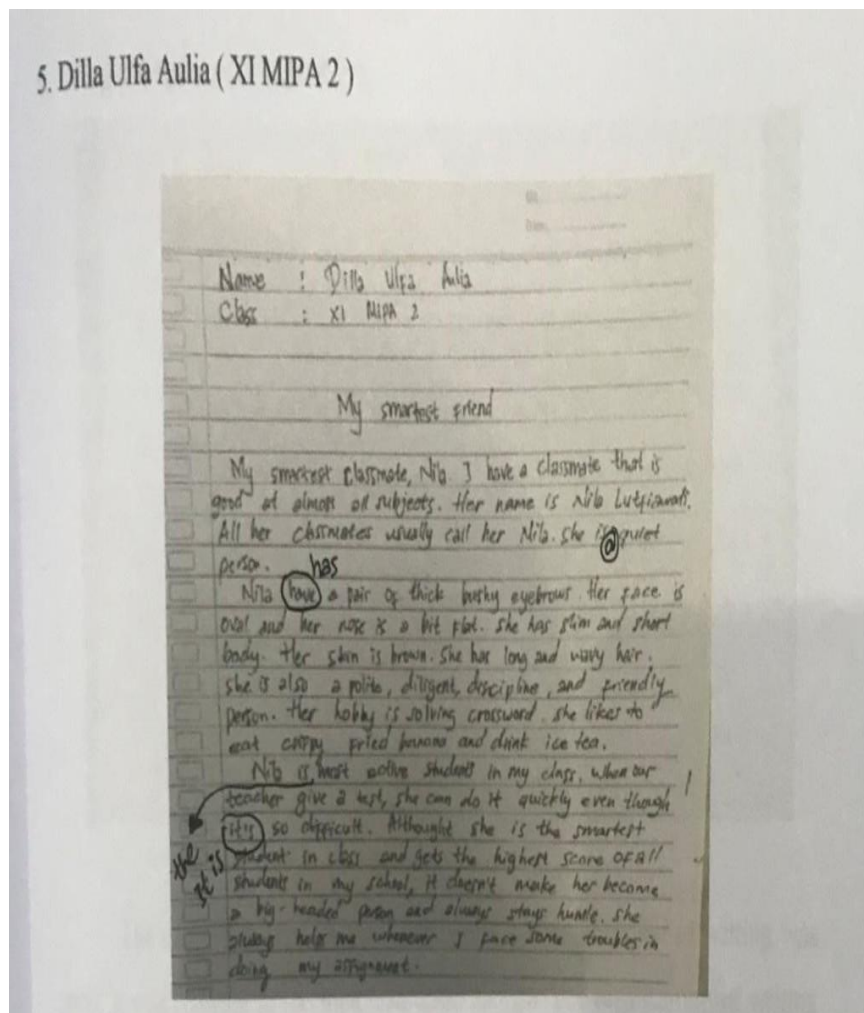 5. Dilla Ulfa Aulia ( XI MIPA 2 )
Name : Dilla Ulfa Aulia
Class : XI MIPA 2
My smartest friend
My smartest classmate, Nila. I have a classmate that is
good at almost all subjects. Her name is Nila Lutfiawati.
All her classmates usually call her Nila. She is a quiet
person. has
Nila have a pair of thick bushy eyebrows. Her face is
oval and her nose is a bit flat. She has slim and short
body. Her skin is brown. She has long and wavy hair.
She is also a polite, diligent, discipline, and friendly
person. Her hobby is solving crossword. She likes to
eat crispy fried banana and drink ice tea.
Nila is most active student in my class, when our
teacher give a test, she can do it quickly even though
it's so difficult. Althought she is the smartest
the It is student in class and gets the highest score of all
students in my school, it doesn't make her become
a big-headed person and always stays humle. She
always help me whenever I face some troubles in
doing my assignment.